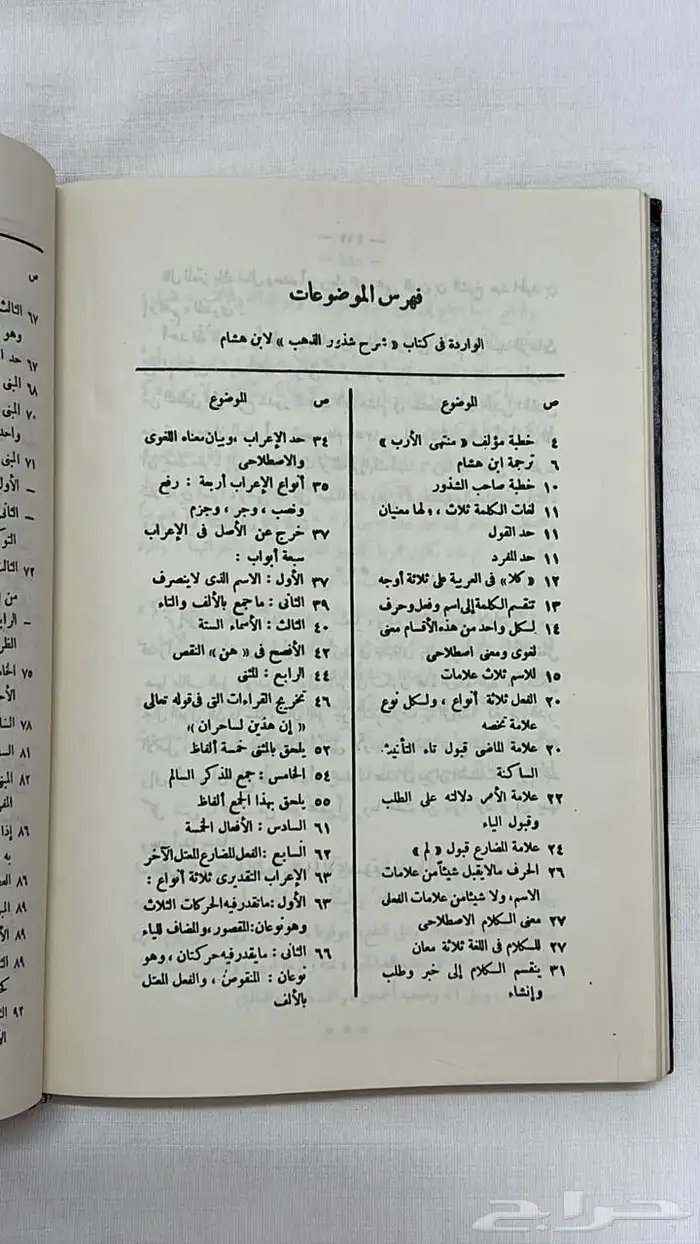 فهرس الموضوعات
الواردة فى كتاب « شرح شذور الذهب » لابن هشام
ص الموضوع
٤ خطبة مؤلف « منتهى الأرب »
٦ ترجمة ابن هشام
١٠ خطبة صاحب الشذور
١١ لغات الكلمة ثلاث ، ولها معنيان
١١ حد القول
١١ حد المفرد
١٢ « كلا » فى العربية على ثلاثة أوجه
١٣ تنقسم الكلمة إلى اسم وفعل وحرف
١٤ لكل واحد من هذه الأقسام معنى
لغوى ومعنى اصطلاحى
١٥ للاسم ثلاث علامات
٢٠ الفعل ثلاثة أنواع ، ولكل نوع
علامة تخصه
٢٠ علامة الماضى قبول تاء التأنيث
الساكنة
٢٢ علامة الأمر دلالته على الطلب
وقبول الياء
٢٤ علامة المضارع قبول « لم »
٢٦ الحرف مالا يقبل شيئا من علامات
الاسم ، ولا شيئا من علامات الفعل
٢٧ معنى الكلام الاصطلاحى
٢٧ للكلام فى اللغة ثلاثة معان
٣١ ينقسم الكلام إلى خبر وطلب
وإنشاء
ص الموضوع
٣٤ حد الإعراب ، وبيان معناه اللغوى
والاصطلاحى
٣٥ أنواع الإعراب أربعة : رفع
ونصب ، وجر ، وجزم
٣٧ خرج عن الأصل فى الإعراب
سبعة أبواب :
٣٧ الأول : الاسم الذى لا ينصرف
٣٩ الثانى : ما جمع بالألف والتاء
٤٠ الثالث : الأسماء الستة
٤٢ الأفصح فى « هن » النقص
٤٤ الرابع : المثنى
٤٦ تخريج القراءات التى فى قوله تعالى
« إن هذين لساحران »
٥٢ يلحق بالمثنى خمسة ألفاظ
٥٤ الخامس : جمع المذكر السالم
٥٥ يلحق بهذا الجمع ألفاظ
٦١ السادس : الأفعال الخمسة
٦٢ السابع : الفعل المضارع المعتل الآخر
٦٣ الإعراب التقديرى ثلاثة أنواع :
٦٣ الأول : ما تقدر فيه الحركات الثلاث
وهو نوعان : المقصور ، والمضاف للياء
٦٦ الثانى : ما يقدر فيه حركتان ، وهو
نوعان : المنقوص ، والفعل المعتل
بالألف
ص
٦٧ الثالث
وهو
٦٧ حد
٦٨ المبنى
٧٠ المبنى
واحد
٧١ المبنى
– الأول
– الثانى
٧٢ الثالث
من
– الرابع
٧٥
٧٨
٨١
٨٢
٨٦ إذا
به
٨٦
٨٩
٨٩
٨٩
٩٢
حراج